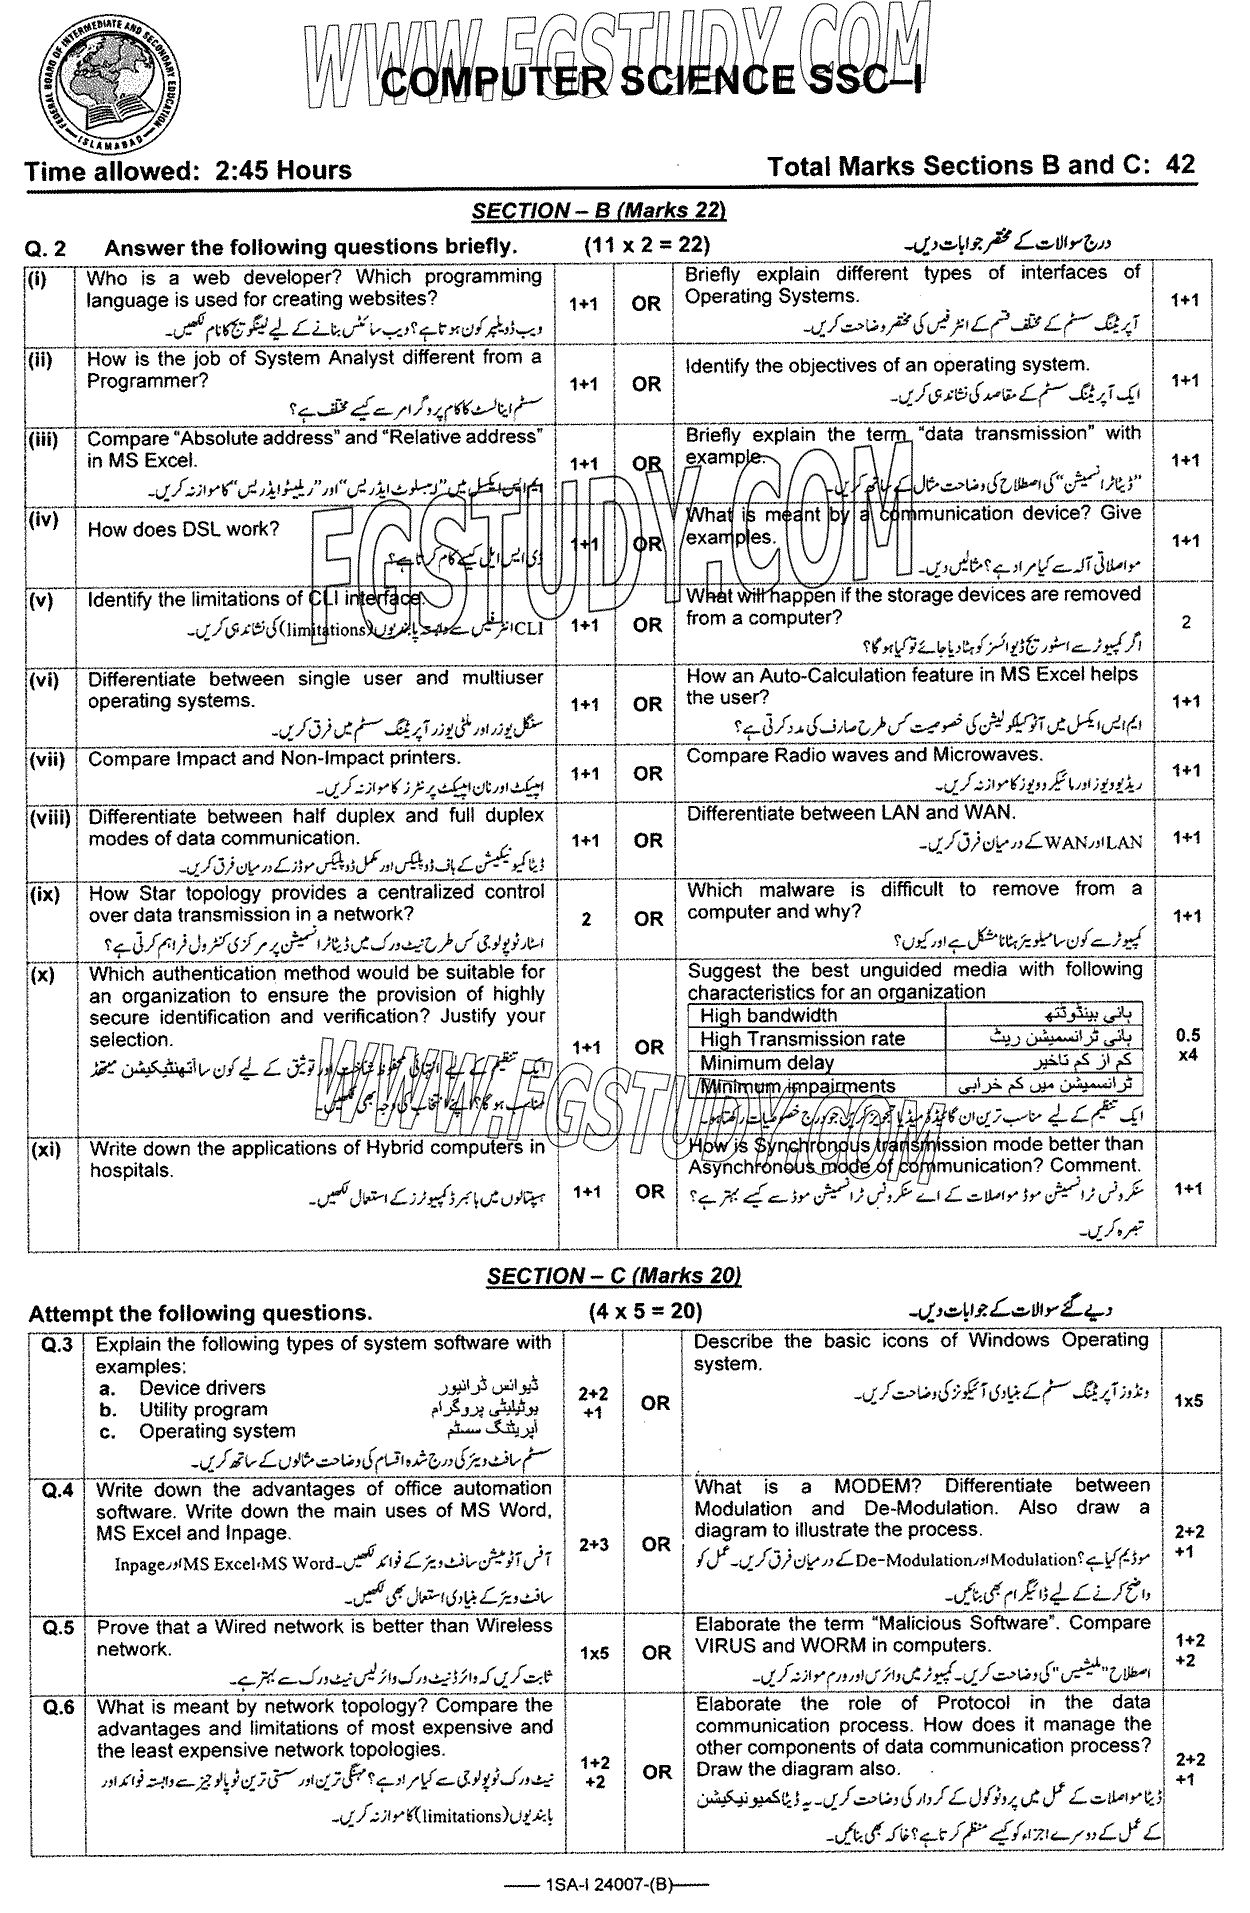 WWW.FGSTUDY.COM
FEDERAL BOARD OF INTERMEDIATE AND SECONDARY EDUCATION
ISLAMABAD
COMPUTER SCIENCE SSC–I
Time allowed: 2:45 Hours
Total Marks Sections B and C: 42
SECTION – B (Marks 22)
Q. 2 Answer the following questions briefly. (11 x 2 = 22) درج سوالات کے مختصر جوابات دیں۔
(i) Who is a web developer? Which programming
language is used for creating websites?
ویب ڈویلپر کون ہوتا ہے؟ ویب سائٹس بنانے کے لیے لینگویج کا نام لکھیں۔
1+1
OR
Briefly explain different types of interfaces of
Operating Systems.
آپریٹنگ سسٹم کے مختلف قسم کے انٹرفیس کی مختصر وضاحت کریں۔
1+1
(ii) How is the job of System Analyst different from a
Programmer?
سسٹم اینالسٹ کا کام پروگرامر سے کیسے مختلف ہے؟
1+1
OR
Identify the objectives of an operating system.
ایک آپریٹنگ سسٹم کے مقاصد کی نشاندہی کریں۔
1+1
(iii) Compare “Absolute address” and “Relative address”
in MS Excel.
ایم ایس ایکسل میں "ایبسلوٹ ایڈریس" اور "ریلیٹو ایڈریس" کا موازنہ کریں۔
1+1
OR
Briefly explain the term “data transmission” with
example.
"ڈیٹا ٹرانسمیشن" کی اصطلاح کی وضاحت مثال کے ساتھ کریں۔
1+1
(iv) How does DSL work?
ڈی ایس ایل کیسے کام کرتا ہے؟
1+1
OR
What is meant by a communication device? Give
examples.
مواصلاتی آلہ سے کیا مراد ہے؟ مثالیں دیں۔
1+1
FGSTUDY.COM
(v) Identify the limitations of CLI interface.
CLI انٹرفیس سے وابستہ پابندیوں (limitations) کی نشاندہی کریں۔
1+1
OR
What will happen if the storage devices are removed
from a computer?
اگر کمپیوٹر سے اسٹوریج ڈیوائسز کو ہٹا دیا جائے تو کیا ہو گا؟
2
(vi) Differentiate between single user and multiuser
operating systems.
سنگل یوزر اور ملٹی یوزر آپریٹنگ سسٹم میں فرق کریں۔
1+1
OR
How an Auto-Calculation feature in MS Excel helps
the user?
ایم ایس ایکسل میں آٹو کیلکولیشن کی خصوصیت کس طرح صارف کی مدد کرتی ہے؟
1+1
(vii) Compare Impact and Non-Impact printers.
امپیکٹ اور نان امپیکٹ پرنٹرز کا موازنہ کریں۔
1+1
OR
Compare Radio waves and Microwaves.
ریڈیو ویوز اور مائیکرو ویوز کا موازنہ کریں۔
1+1
(viii) Differentiate between half duplex and full duplex
modes of data communication.
ڈیٹا کمیونیکیشن کے ہاف ڈوپلیکس اور مکمل ڈوپلیکس موڈز کے درمیان فرق کریں۔
1+1
OR
Differentiate between LAN and WAN.
LAN اور WAN کے درمیان فرق کریں۔
1+1
(ix) How Star topology provides a centralized control
over data transmission in a network?
اسٹار ٹوپولوجی کس طرح نیٹ ورک میں ڈیٹا ٹرانسمیشن پر مرکزی کنٹرول فراہم کرتی ہے؟
2
OR
Which malware is difficult to remove from a
computer and why?
کمپیوٹر سے کون سا میلویئر ہٹانا مشکل ہے اور کیوں؟
1+1
(x) Which authentication method would be suitable for
an organization to ensure the provision of highly
secure identification and verification? Justify your
selection.
ایک تنظیم کے لیے انتہائی محفوظ شناخت اور توثیق کے لیے کون سا آتھنٹیکیشن میتھڈ
مناسب ہو گا؟ اپنے انتخاب کی وجہ بھی لکھیں۔
1+1
OR
Suggest the best unguided media with following
characteristics for an organization
High bandwidth ہائی بینڈوڈتھ
High Transmission rate ہائی ٹرانسمیشن ریٹ
Minimum delay کم از کم تاخیر
Minimum impairments ٹرانسمیشن میں کم خرابی
ایک تنظیم کے لیے مناسب ترین ان گائیڈڈ میڈیا تجویز کریں جو درج خصوصیات رکھتا ہو۔
0.5
x4
WWW.FGSTUDY.COM
(xi) Write down the applications of Hybrid computers in
hospitals.
ہسپتالوں میں ہائبرڈ کمپیوٹرز کے استعمال لکھیں۔
1+1
OR
How is Synchronous transmission mode better than
Asynchronous mode of communication? Comment.
سنکرونس ٹرانسمیشن موڈ مواصلات کے اے سنکرونس ٹرانسمیشن موڈ سے کیسے بہتر ہے؟
تبصرہ کریں۔
1+1
SECTION – C (Marks 20)
Attempt the following questions. (4 x 5 = 20) دیے گئے سوالات کے جوابات دیں۔
Q.3 Explain the following types of system software with
examples:
a. Device drivers ڈیوائس ڈرائیور
b. Utility program یوٹیلیٹی پروگرام
c. Operating system آپریٹنگ سسٹم
سسٹم سافٹ ویئر کی درج شدہ اقسام کی وضاحت مثالوں کے ساتھ کریں۔
2+2
+1
OR
Describe the basic icons of Windows Operating
system.
ونڈوز آپریٹنگ سسٹم کے بنیادی آئیکونز کی وضاحت کریں۔
1x5
Q.4 Write down the advantages of office automation
software. Write down the main uses of MS Word,
MS Excel and Inpage.
آفس آٹومیشن سافٹ ویئر کے فوائد لکھیں۔ MS Word، MS Excel اور Inpage
سافٹ ویئر کے بنیادی استعمال بھی لکھیں۔
2+3
OR
What is a MODEM? Differentiate between
Modulation and De-Modulation. Also draw a
diagram to illustrate the process.
موڈیم کیا ہے؟ Modulation اور De-Modulation کے درمیان فرق کریں۔ عمل کو
واضح کرنے کے لیے ڈائیگرام بھی بنائیں۔
2+2
+1
Q.5 Prove that a Wired network is better than Wireless
network.
ثابت کریں کہ وائرڈ نیٹ ورک وائرلیس نیٹ ورک سے بہتر ہے۔
1x5
OR
Elaborate the term “Malicious Software”. Compare
VIRUS and WORM in computers.
اصطلاح "ملیشیس" کی وضاحت کریں۔ کمپیوٹر میں وائرس اور ورم موازنہ کریں۔
1+2
+2
Q.6 What is meant by network topology? Compare the
advantages and limitations of most expensive and
the least expensive network topologies.
نیٹ ورک ٹوپولوجی سے کیا مراد ہے؟ مہنگی ترین اور سستی ترین ٹوپالوجیز سے وابستہ فوائد اور
پابندیوں (limitations) کا موازنہ کریں۔
1+2
+2
OR
Elaborate the role of Protocol in the data
communication process. How does it manage the
other components of data communication process?
Draw the diagram also.
ڈیٹا مواصلات کے عمل میں پروٹوکول کے کردار کی وضاحت کریں۔ یہ ڈیٹا کمیونیکیشن
کے عمل کے دوسرے اجزاء کو کیسے منظم کرتا ہے؟ خاکہ بھی بنائیں۔
2+2
+1
1SA-I 24007-(B)